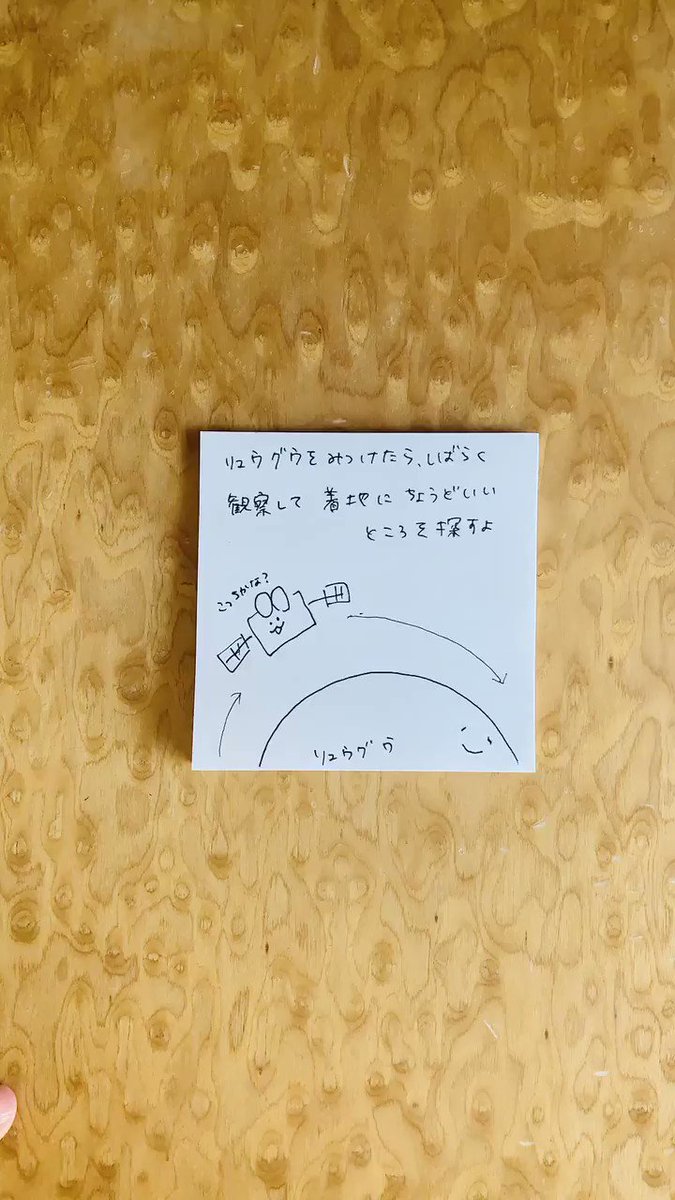 リュウグウをみつけたら、しばらく
観察して 着地に ちょうどいい
ところを探すよ
こっちかな?
リュウグウ